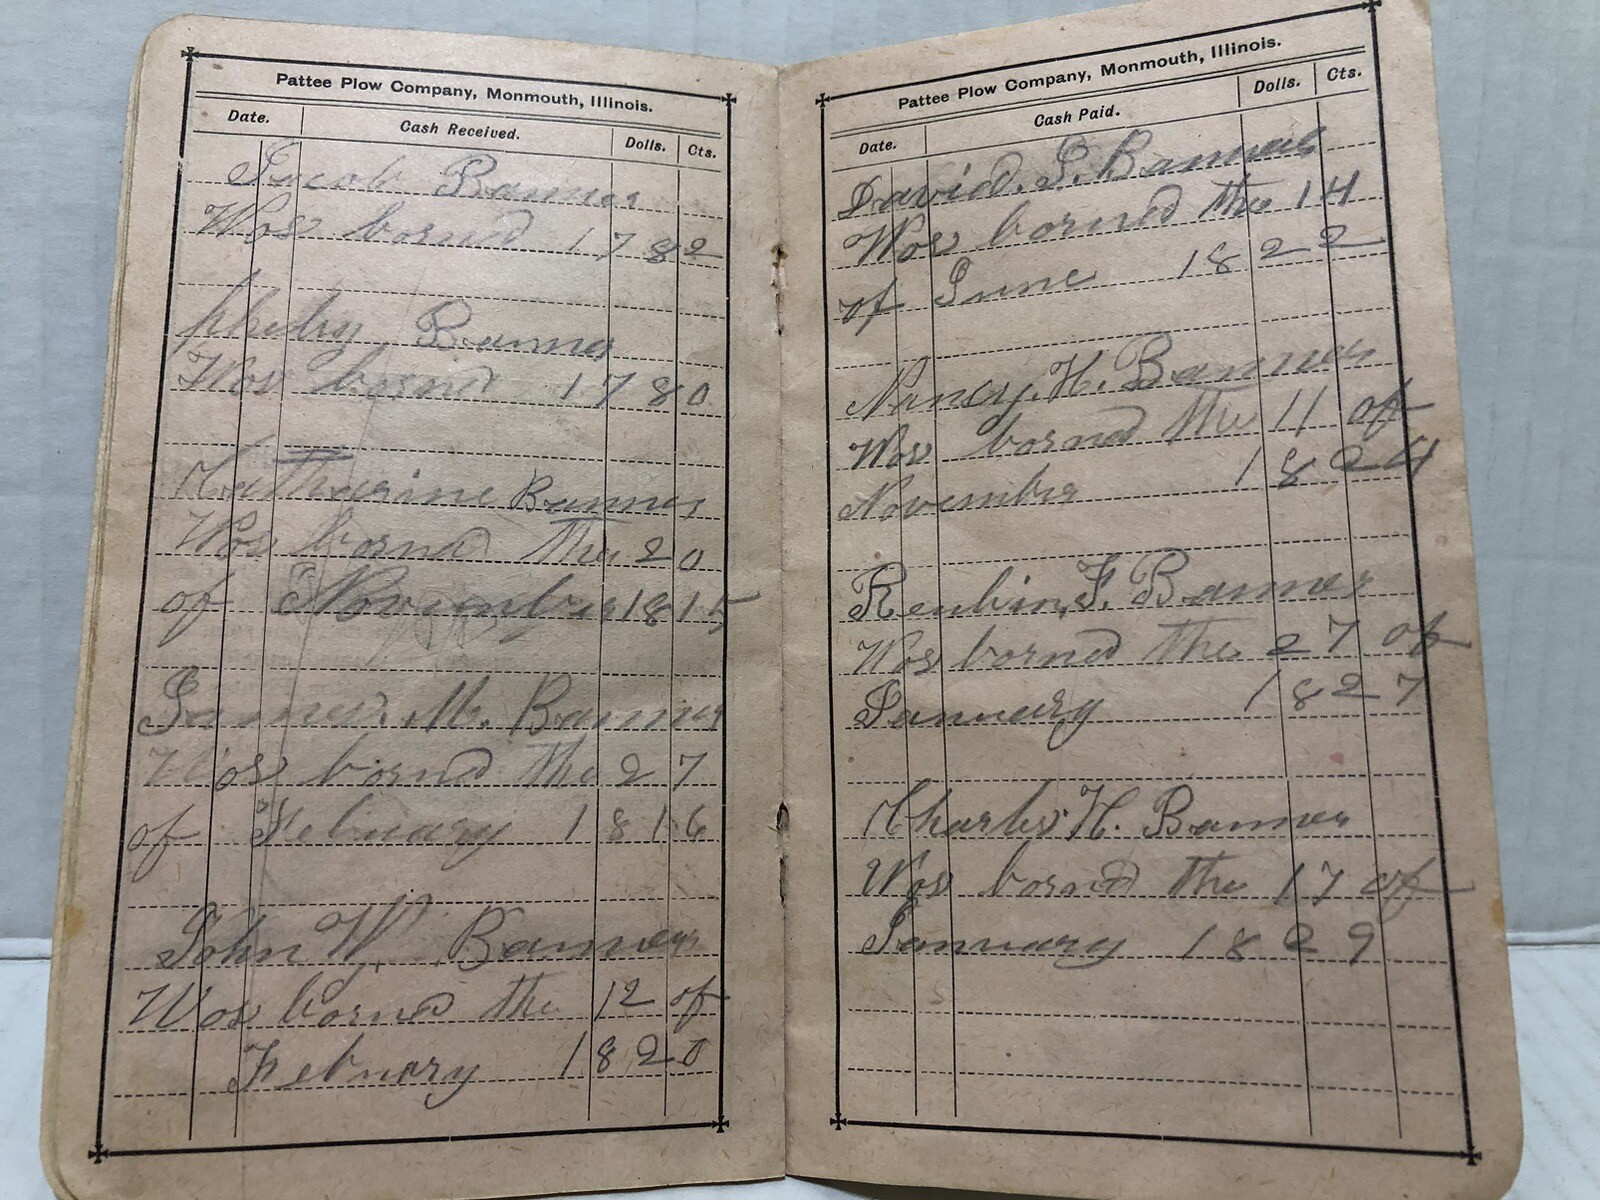 Pattee Plow Company, Monmouth, Illinois.
Date. Cash Received. Dolls. Cts.
Jacob Barnes
Wos borned 1782
pheby Barnes
Wos borned 1780
Katharine Barnes
Wos borned the 20
of November 1815
James. M. Barnes
Wos borned the 27
of Februery 1816
John W. Barnes
Wos borned the 12 of
Februery 1820
Pattee Plow Company, Monmouth, Illinois.
Date. Cash Paid. Dolls. Cts.
David. S. Barnes
Wos borned the 14
of June 1822
Nancy. H. Barnes
Wos borned the 11 of
November 1824
Reubin, F. Barnes
Wos borned the 27 of
January 1827
Charles H. Barnes
Wos borned the 17 of
January 1829